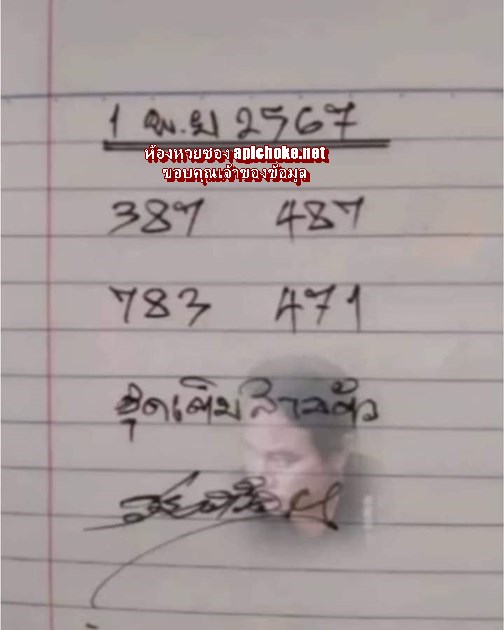 1 พ.ย 2567
ห้องหวยซอง apichoke.net
ขอบคุณเจ้าของข้อมูล
387 487
783 471
ชุดเต็มสามตัว